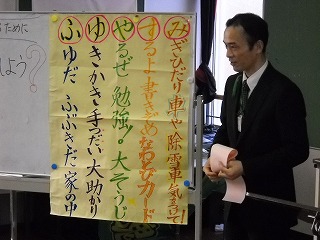 みぎひだり 車や除雪車 気をつけて!
するよ 書きぞめ なわとびカード
やるぜ 勉強! 大そうじ
ゆきかき 手つだい 大助かり
ふゆだ ふぶきだ 家の中
ために
しよう?